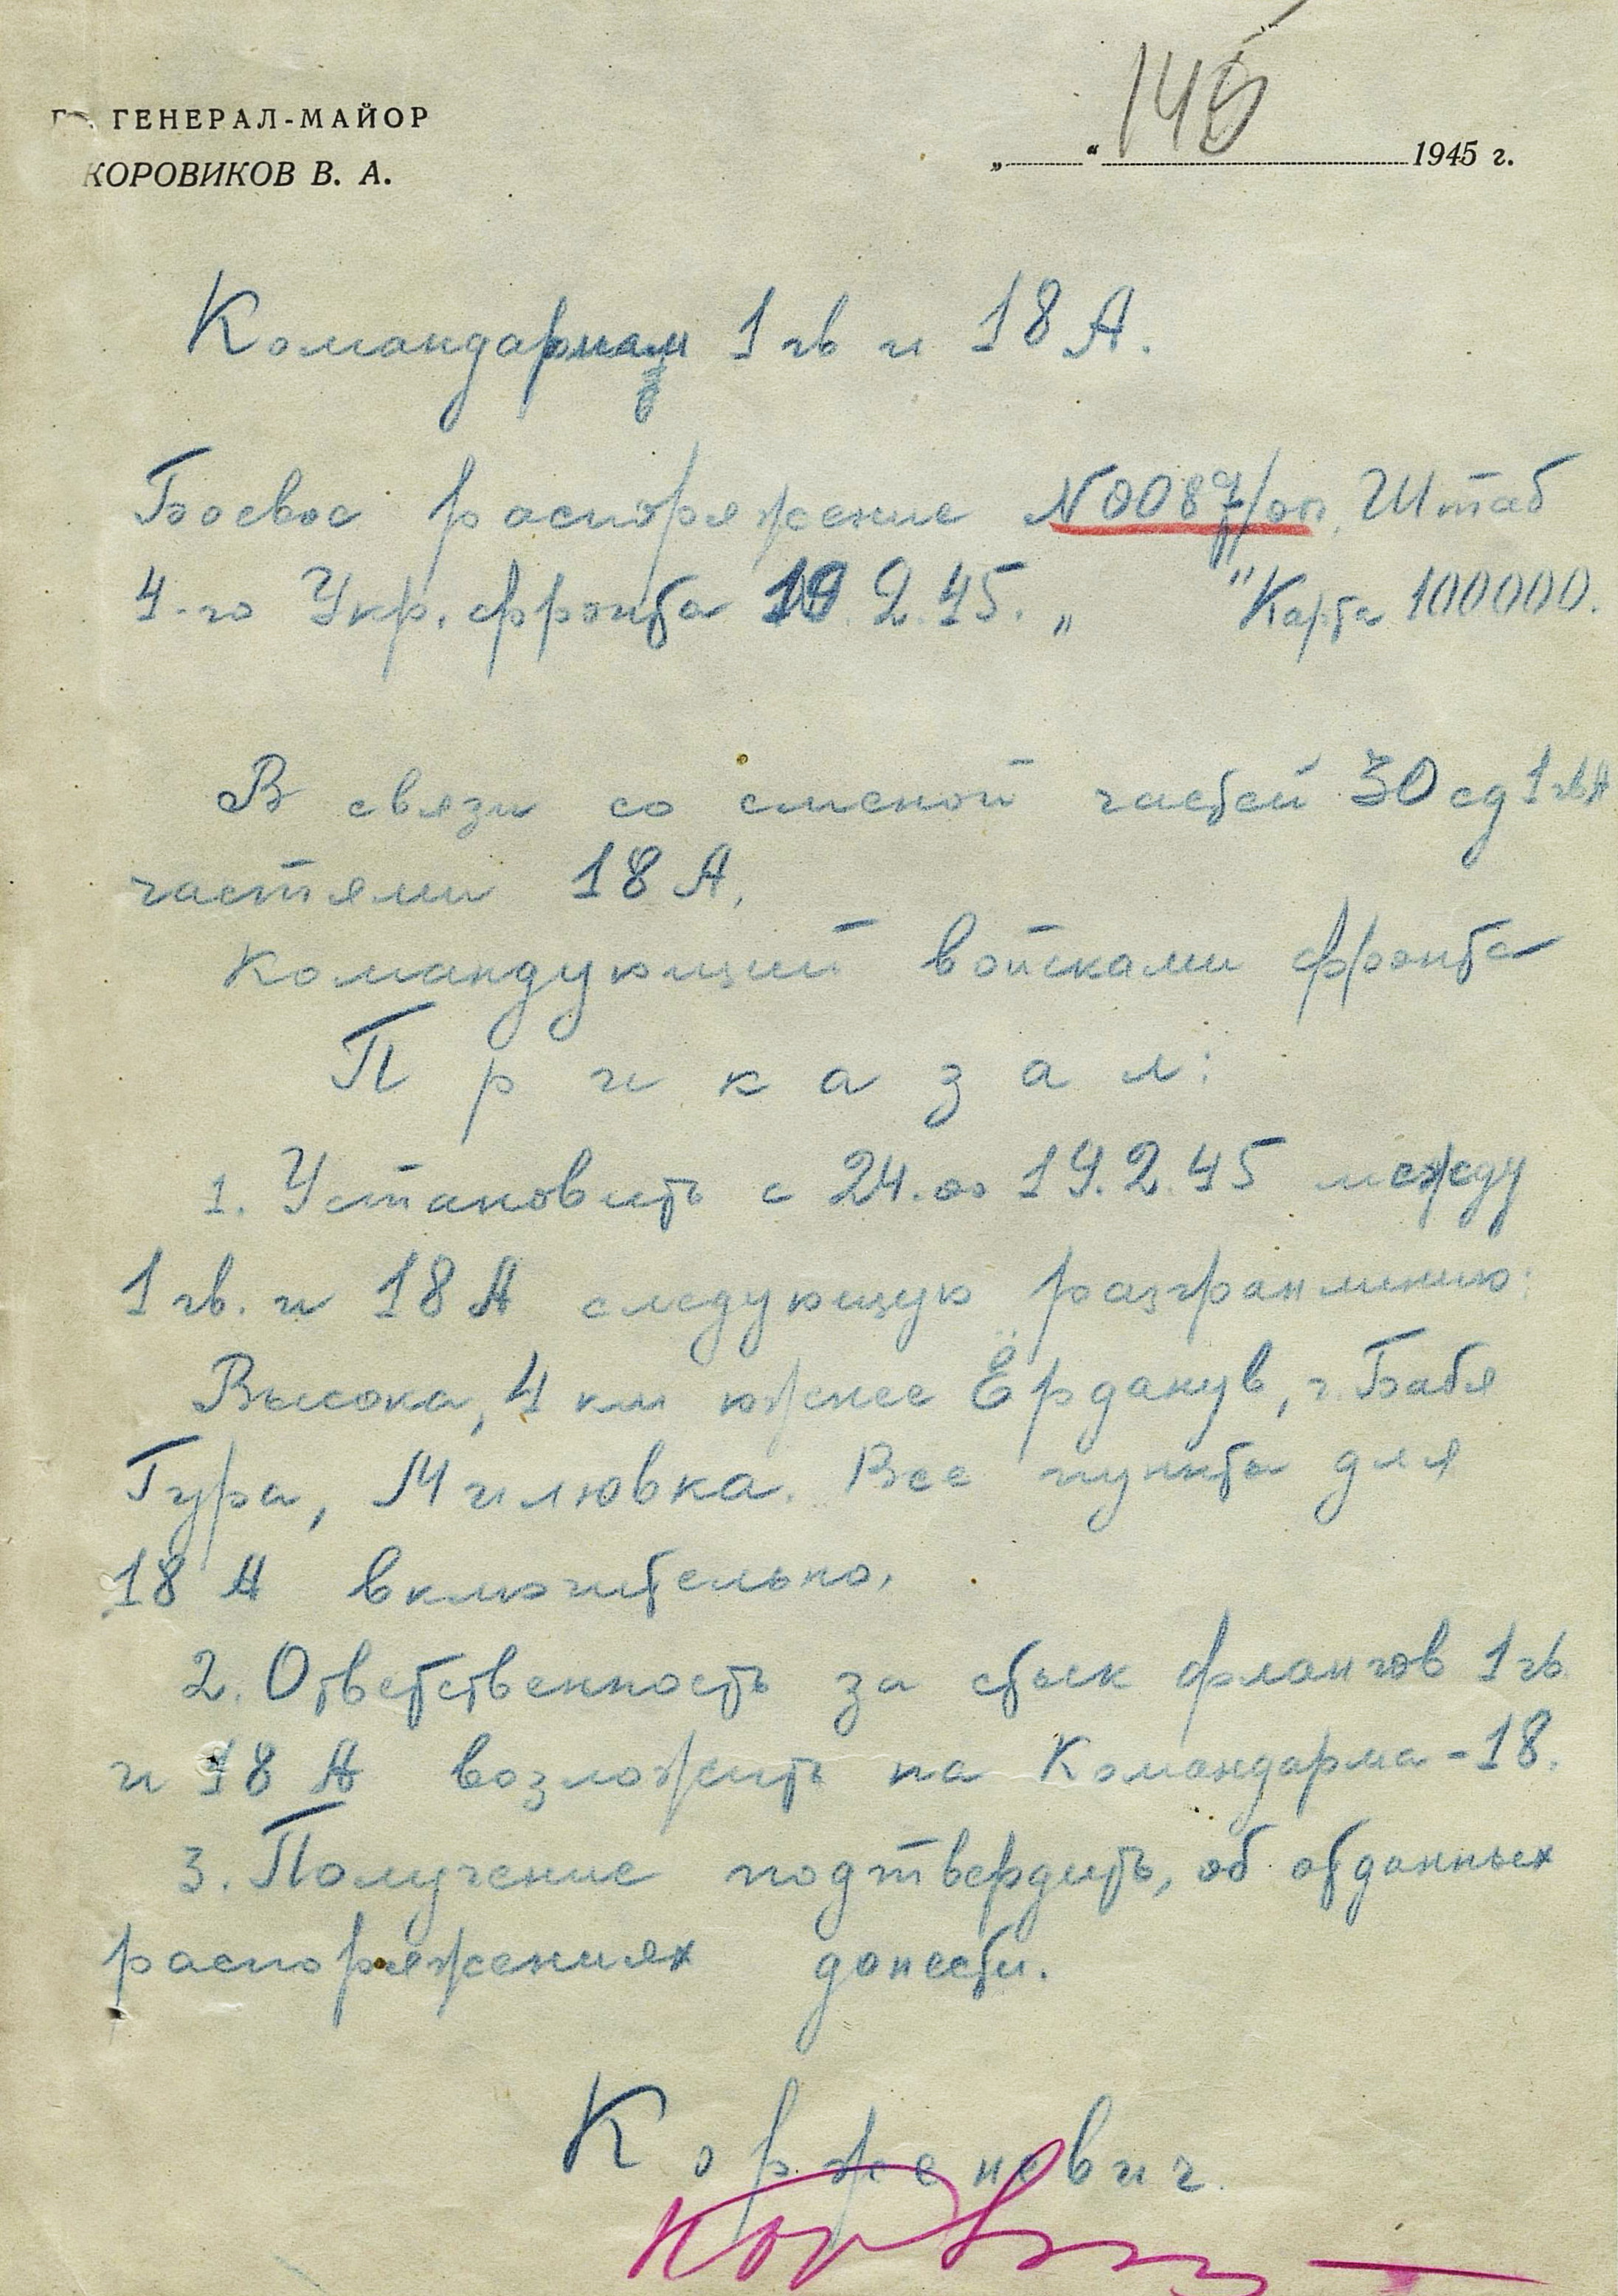 ГЕНЕРАЛ-МАЙОР
КОРОВИКОВ В. А.
„ “ 1945 г.
Командармам 1 гв и 18 А.
Боевое распоряжение N 0087/оп. Штаб
4-го Укр. фронта 19.2.45. „ " Карта 100000.
В связи со сменой частей 30 сд 1 гв А
частями 18 А,
Командующий войсками фронта
Приказал:
1. Установить с 24.00 19.2.45 между
1 гв. и 18 А следующую разгранлинию:
Высока, 4 км южнее Ёрданув, г. Бабя
Гура, Милювка. Все пункты для
18 А включительно.
2. Ответственность за стык флангов 1 гв
и 18 А возложить на Командарма-18.
3. Получение подтвердить, об отданных
распоряжениях донести.
Корженевич.